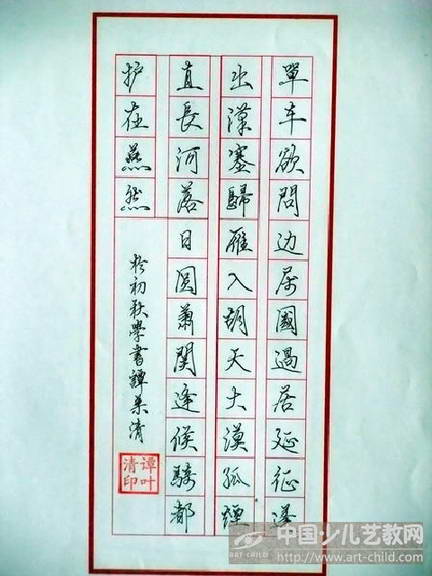 單车欲問边属國過居延征蓬
出漢塞歸雁入胡天大漠孤煙
直長河落日圆蕭関逢候騎都
护在燕然
於初秋學書譚葉清
谭叶
清印
中国少儿艺教网
ART CHILD
http://www.art-child.com